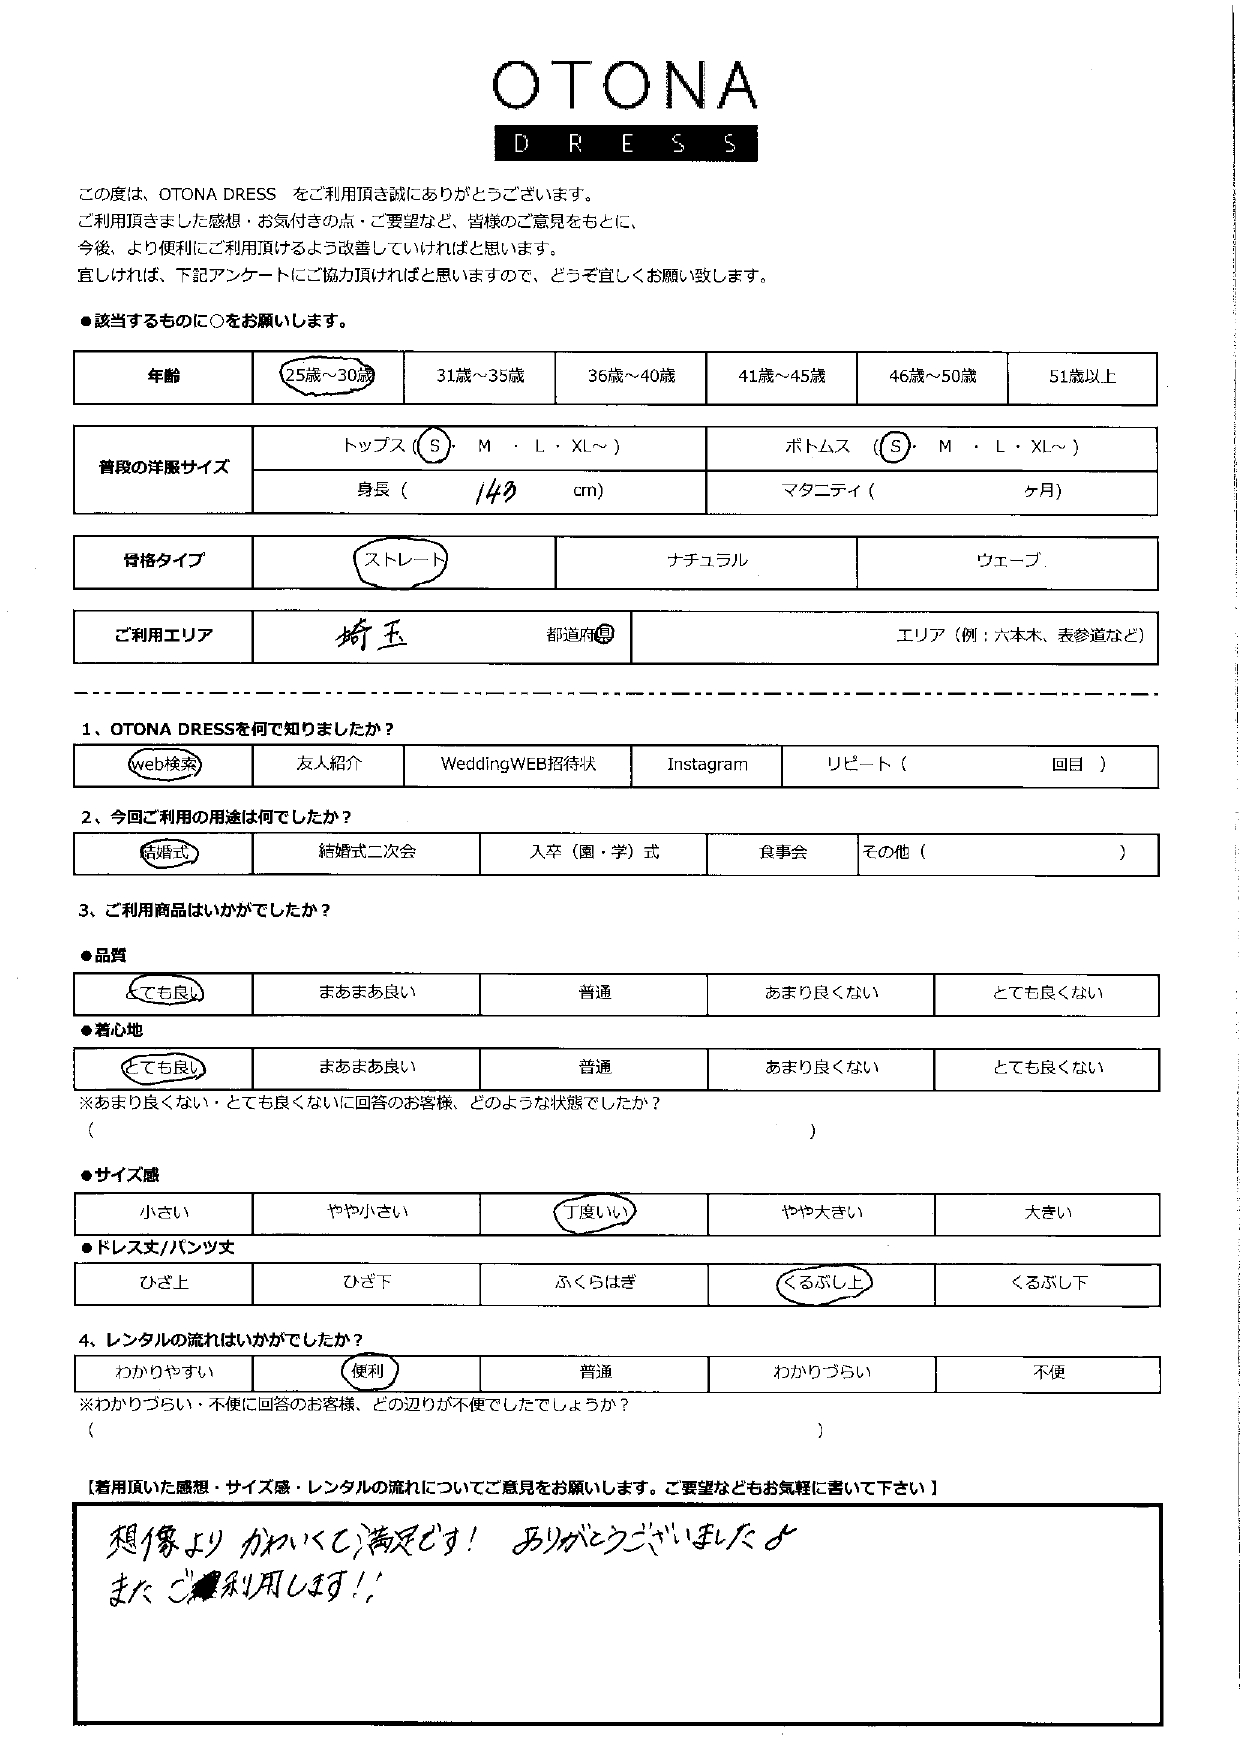 OTONA
DRESS
この度は、OTONA DRESS　をご利用頂き誠にありがとうございます。
ご利用頂きました感想・お気付きの点・ご要望など、皆様のご意見をもとに、
今後、より便利にご利用頂けるよう改善していければと思います。
宜しければ、下記アンケートにご協力頂ければと思いますので、どうぞ宜しくお願い致します。
●該当するものに○をお願いします。
年齢 25歳～30歳 31歳～35歳 36歳～40歳 41歳～45歳 46歳～50歳 51歳以上
普段の洋服サイズ
トップス (S・ M ・ L・ XL～ ) ボトムス (S・ M ・ L・ XL～ )
身長 ( 143 cm) マタニティ ( ヶ月)
骨格タイプ ストレート ナチュラル ウェーブ
ご利用エリア 埼玉 都道府県 エリア（例：六本木、表参道など）
1、OTONA DRESSを何で知りましたか？
web検索 友人紹介 WeddingWEB招待状 Instagram リピート（ 回目 ）
2、今回ご利用の用途は何でしたか？
結婚式 結婚式二次会 入卒（園・学）式 食事会 その他（ ）
3、ご利用商品はいかがでしたか？
●品質
とても良い まあまあ良い 普通 あまり良くない とても良くない
●着心地
とても良い まあまあ良い 普通 あまり良くない とても良くない
※あまり良くない・とても良くないに回答のお客様、どのような状態でしたか？
（ ）
●サイズ感
小さい やや小さい 丁度いい やや大きい 大きい
●ドレス丈/パンツ丈
ひざ上 ひざ下 ふくらはぎ くるぶし上 くるぶし下
4、レンタルの流れはいかがでしたか？
わかりやすい 便利 普通 わかりづらい 不便
※わかりづらい・不便に回答のお客様、どの辺りが不便でしたでしょうか？
（ ）
【着用頂いた感想・サイズ感・レンタルの流れについてご意見をお願いします。ご要望などもお気軽に書いて下さい】
想像より かわいくて満足です！ ありがとうございました
またご利用します！！